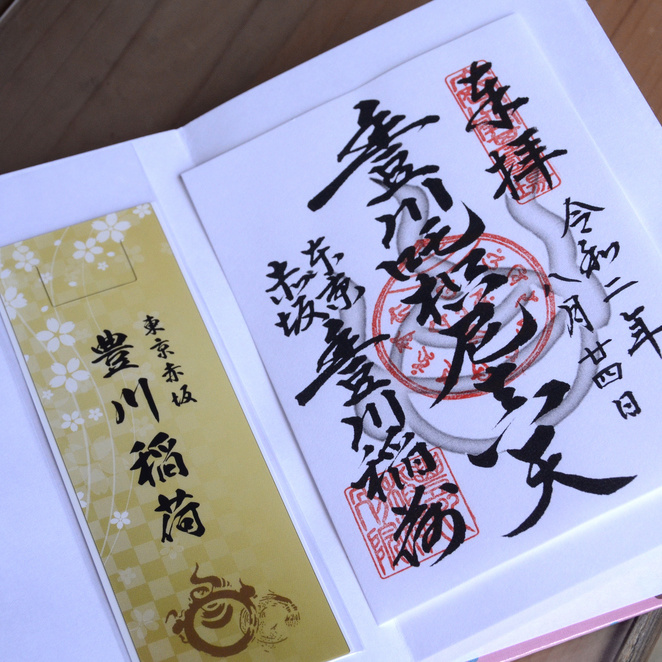 奉拝
令和二年
八月廿四日
豊川吒枳尼真天
東京
赤坂
豊川稲荷
東京赤坂
豊川稲荷